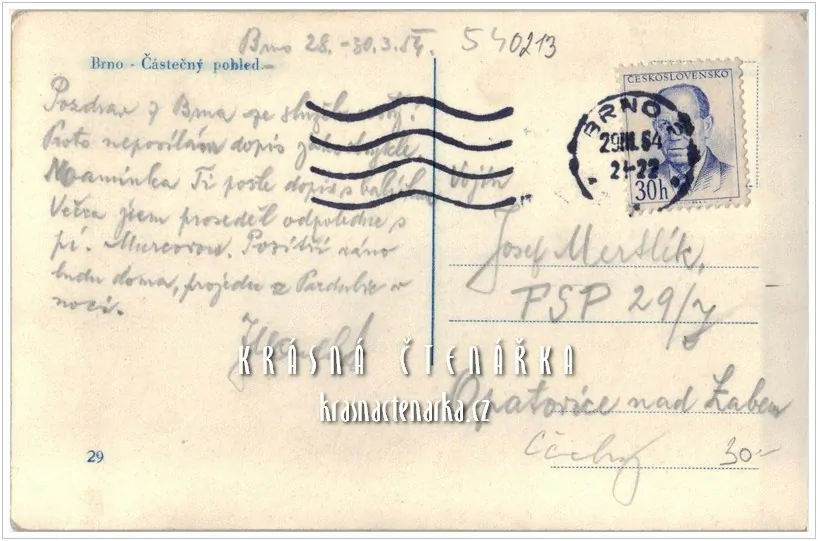 Brno 28.-30.3.54. 540213
Brno - Částečný pohled.
ČESKOSLOVENSKO
30h
BRNO 2
29.III.54
21-22
Pozdrav z Brna ze služební cesty!
Proto neposílám dopis jako obykle.
Maminka Ti pošle dopis s balíkem
Večer jsem proseděl odpoledne s
pí. Pozítří ráno
budu doma, projedu z Pardubic v
noci.
Vojín
Josef Mertlík,
PSP 29/
Opatovice nad Labem
Čechy
30-
KRÁSNÁ ČTENÁŘKA
krasnactenarka.cz
29